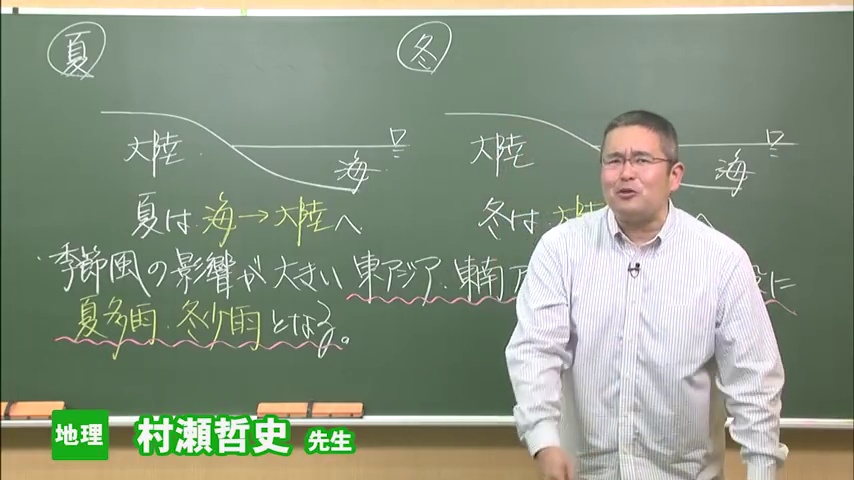 夏
冬
大陸
海
大陸
海
夏は 海→大陸へ
冬は 大陸 へ
季節風の影響が大きい 東アジア・東南ア に
夏多雨・冬少雨となる。
地理 村瀬哲史 先生